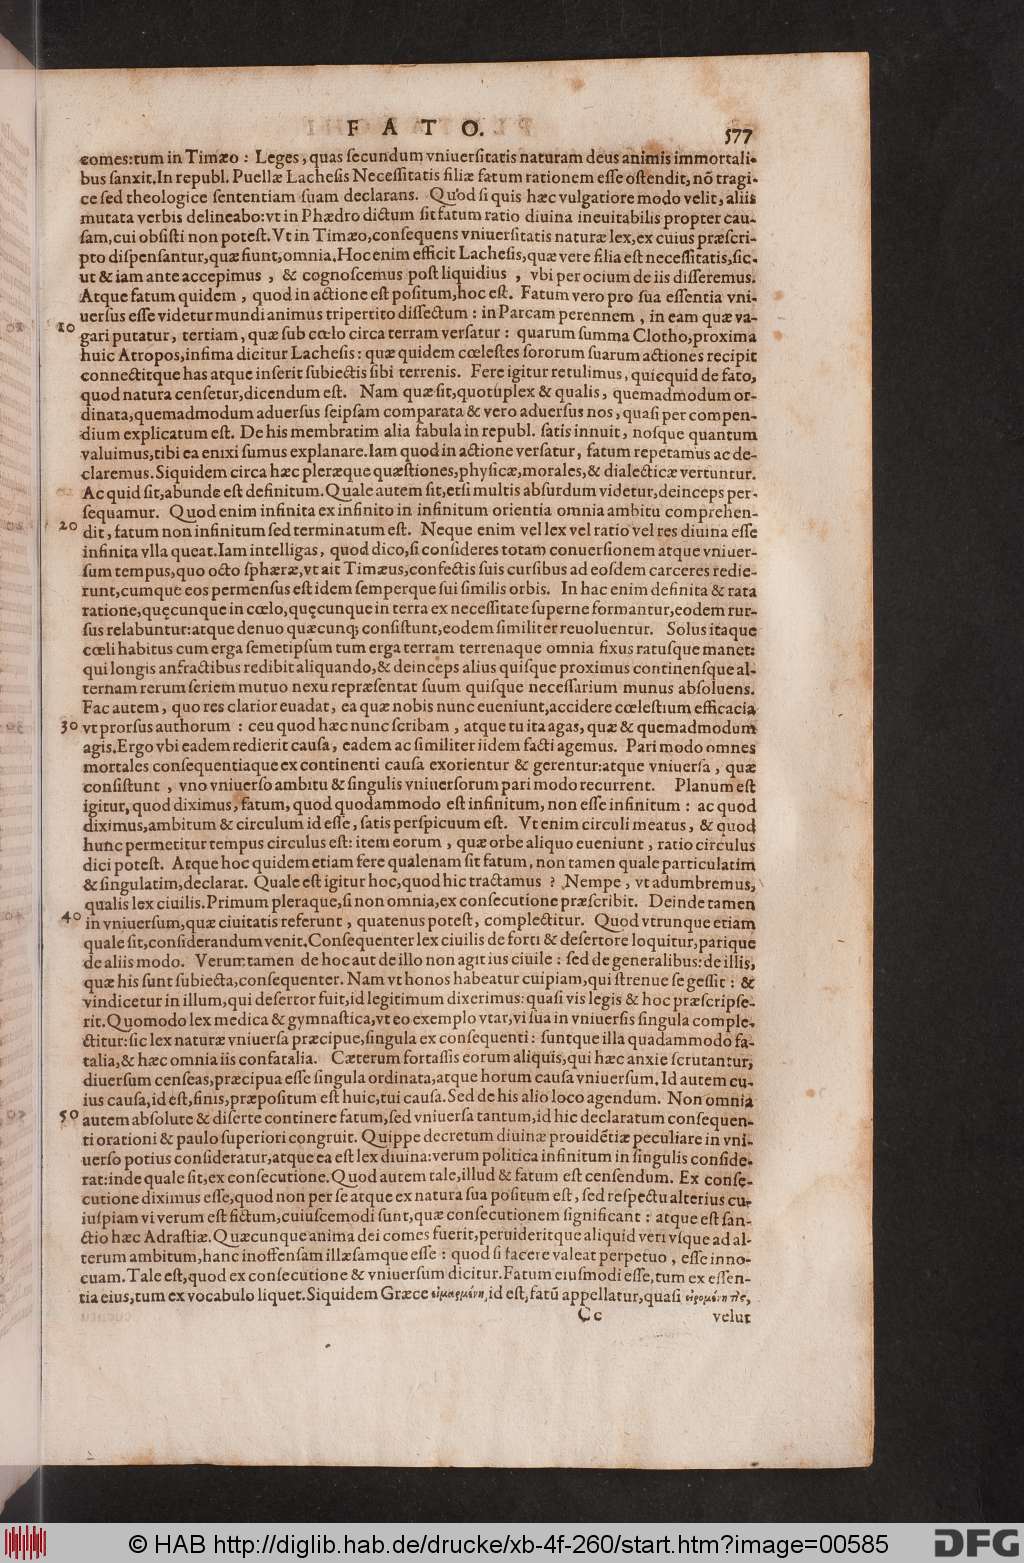 F A T O. 577
comes:tum in Timæo : Leges, quas ſecundum vniuerſitatis naturam deus animis immortali-
bus ſanxit. In republ. Puellæ Lacheſis Neceſſitatis filiæ fatum rationem eſſe oſtendit, nõ tragi-
ce ſed theologice ſententiam ſuam declarans. Quod ſi quis hæc vulgatiore modo velit, aliis
mutata verbis delineabo: vt in Phædro dictum ſit fatum ratio diuina ineuitabilis propter cau-
ſam, cui obſiſti non poteſt. Vt in Timæo, conſequens vniuerſitatis naturæ lex, ex cuius præſcri-
pto diſpenſantur, quæ fiunt, omnia. Hoc enim efficit Lacheſis, quæ vere filia eſt neceſſitatis, ſic-
ut & iam ante accepimus , & cognoſcemus poſt liquidius , vbi per ocium de iis diſſeremus.
Atque fatum quidem , quod in actione eſt poſitum, hoc eſt. Fatum vero pro ſua eſſentia vni-
uerſus eſſe videtur mundi animus tripertito diſſectum : in Parcam perennem , in eam quæ va-
10 gari putatur, tertiam, quæ ſub cœlo circa terram verſatur : quarum ſumma Clotho, proxima
huic Atropos, infima dicitur Lacheſis : quæ quidem cœleſtes ſororum ſuarum actiones recipit
connectitque has atque inſerit ſubiectis ſibi terrenis. Fere igitur retulimus, quicquid de fato,
quod natura cenſetur, dicendum eſt. Nam quæ ſit, quotuplex & qualis , quemadmodum or-
dinata, quemadmodum aduerſus ſeipſam comparata & vero aduerſus nos , quaſi per compen-
dium explicatum eſt. De his membratim alia fabula in republ. ſatis innuit, noſque quantum
valuimus, tibi ea enixi ſumus explanare. Iam quod in actione verſatur, fatum repetamus ac de-
claremus. Siquidem circa hæc pleræque quæſtiones, phyſicæ, morales, & dialecticæ vertuntur.
Ac quid ſit, abunde eſt definitum. Quale autem ſit, etſi multis abſurdum videtur, deinceps per-
ſequamur. Quod enim infinita ex infinito in infinitum orientia omnia ambitu comprehen-
20 dit, fatum non infinitum ſed terminatum eſt. Neque enim vel lex vel ratio vel res diuina eſſe
infinita vlla queat. Iam intelligas, quod dico, ſi conſideres totam conuerſionem atque vniuer-
ſum tempus, quo octo ſphæræ, vt ait Timæus, confectis ſuis curſibus ad eoſdem carceres redie-
runt, cumque eos permenſus eſt idem ſemperque ſui ſimilis orbis. In hac enim definita & rata
ratione, quęcunque in cœlo, quęcunque in terra ex neceſſitate ſuperne formantur, eodem rur-
ſus relabuntur: atque denuo quæcunq; conſiſtunt, eodem ſimiliter reuoluentur. Solus itaque
cœli habitus cum erga ſemetipſum tum erga terram terrenaque omnia fixus ratuſque manet:
qui longis anfractibus redibit aliquando, & deinceps alius quiſque proximus continenſque al-
ternam rerum ſeriem mutuo nexu repræſentat ſuum quiſque neceſſarium munus abſoluens.
Fac autem, quo res clarior euadat, ea quæ nobis nunc eueniunt, accidere cœleſtium efficacia
30 vt prorſus authorum : ceu quod hæc nunc ſcribam , atque tu ita agas, quæ & quemadmodum
agis. Ergo vbi eadem redierit cauſa, eadem ac ſimiliter iidem facti agemus. Pari modo omnes
mortales conſequentiaque ex continenti cauſa exorientur & gerentur: atque vniuerſa , quæ
conſiſtunt , vno vniuerſo ambitu & ſingulis vniuerſorum pari modo recurrent. Planum eſt
igitur, quod diximus, fatum, quod quodammodo eſt infinitum, non eſſe infinitum : ac quod
diximus, ambitum & circulum id eſſe, ſatis perſpicuum eſt. Vt enim circuli meatus, & quod
hunc permetitur tempus circulus eſt: item eorum , quæ orbe aliquo eueniunt , ratio circulus
dici poteſt. Atque hoc quidem etiam fere qualenam ſit fatum, non tamen quale particulatim
& ſingulatim, declarat. Quale eſt igitur hoc, quod hic tractamus ? Nempe, vt adumbremus,
qualis lex ciuilis. Primum pleraque, ſi non omnia, ex conſecutione præſcribit. Deinde tamen
40 in vniuerſum, quæ ciuitatis referunt , quatenus poteſt, complectitur. Quod vtrunque etiam
quale ſit, conſiderandum venit. Conſequenter lex ciuilis de forti & deſertore loquitur, parique
de aliis modo. Verumtamen de hoc aut de illo non agit ius ciuile : ſed de generalibus: de illis,
quæ his ſunt ſubiecta, conſequenter. Nam vt honos habeatur cuipiam, qui ſtrenue ſe geſſit : &
vindicetur in illum, qui deſertor fuit, id legitimum dixerimus: quaſi vis legis & hoc præſcripſe-
rit. Quomodo lex medica & gymnaſtica, vt eo exemplo vtar, vi ſua in vniuerſis ſingula comple-
ctitur: ſic lex naturæ vniuerſa præcipue, ſingula ex conſequenti : ſuntque illa quadammodo fa-
talia, & hæc omnia iis confatalia. Cæterum fortaſſis eorum aliquis, qui hæc anxie ſcrutantur,
diuerſum cenſeas, præcipua eſſe ſingula ordinata, atque horum cauſa vniuerſum. Id autem cu-
ius cauſa, id eſt, finis, præpoſitum eſt huic, cui cauſa. Sed de his alio loco agendum. Non omnia
50 autem abſolute & diſerte continere fatum, ſed vniuerſa tantum, id hic declaratum conſequen-
ti orationi & paulo ſuperiori congruit. Quippe decretum diuinæ prouidẽtiæ peculiare in vni-
uerſo potius conſideratur, atque ea eſt lex diuina: verum politica infinitum in ſingulis conſide-
rat: inde quale ſit, ex conſecutione. Quod autem tale, illud & fatum eſt cenſendum. Ex conſe-
cutione diximus eſſe, quod non per ſe atque ex natura ſua poſitum eſt, ſed reſpectu alterius cu-
iuſpiam vi verum eſt fictum, cuiuſcemodi ſunt, quæ conſecutionem ſignificant : atque eſt ſan-
ctio hæc Adraſtiæ. Quæcunque anima dei comes fuerit, peruideritque aliquid veri vſque ad al-
terum ambitum, hanc inoffenſam illæſamque eſſe : quod ſi facere valeat perpetuo , eſſe inno-
cuam. Tale eſt, quod ex conſecutione & vniuerſum dicitur. Fatum eiuſmodi eſſe, tum ex eſſen-
tia eius, tum ex vocabulo liquet. Siquidem Græce εἱμαρμένη, id eſt, fatũ appellatur, quaſi εἰρομένη τὶς,
Cc velut
© HAB http://diglib.hab.de/drucke/xb-4f-260/start.htm?image=00585 DFG